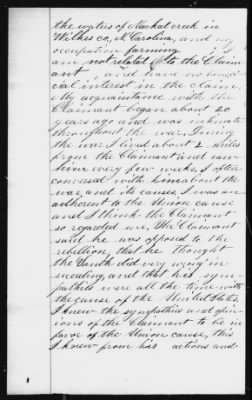 the waters of Naked creek in
Wilkes co, N. Carolina, and my
occupation farming I
am not related to the Claim-
ant, and have no benefi-
cial interest in the claim.
My acquaintance with the
Claimant began about 20
years ago and was intimate
throughout the war. During
the war I lived about 2 miles
from the Claimant and saw
him every few weeks, I often
conversed with him about the
war, and its causes, I was an
adherent to the Union cause
and I think the Claimant
so regarded me, The Claimant
said he was opposed to the
rebellion, that he thought
the South did very wrong in
seceding, and that his sym-
pathies were all the time with
the cause of the United States.
I knew the sympathies and opin-
ions of the Claimant to be in
favor of the Union cause, this
I knew from his actions and